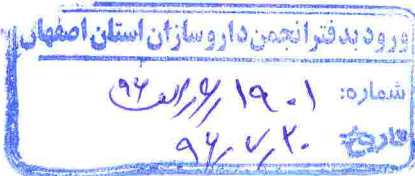 ورود بدفتر انجمن داروسازان استان اصفهان
شماره: ۱۹۰۱/الف/۹۶
تاریخ ۹۶/۷/۲۰